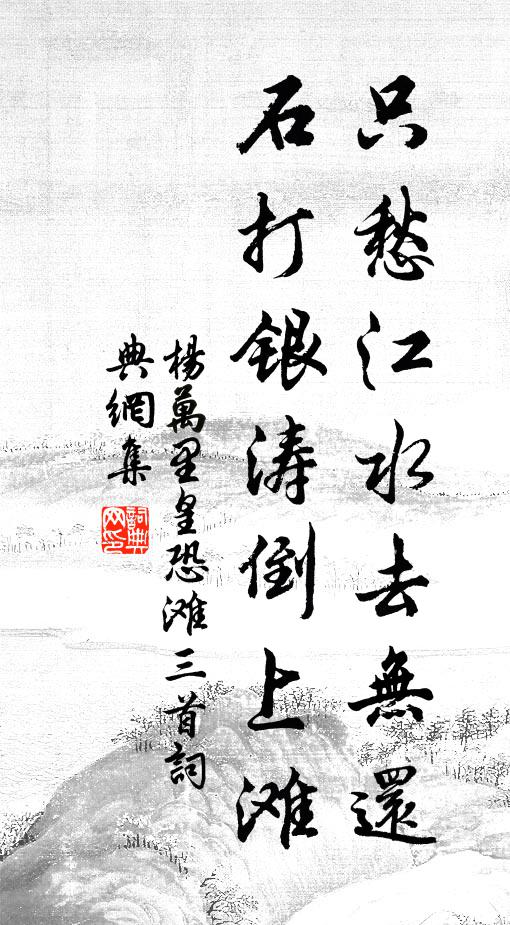 只愁江水去無還
石打銀涛倒上滩
楊萬里皇恐滩三首詞
典網集
詞典网印